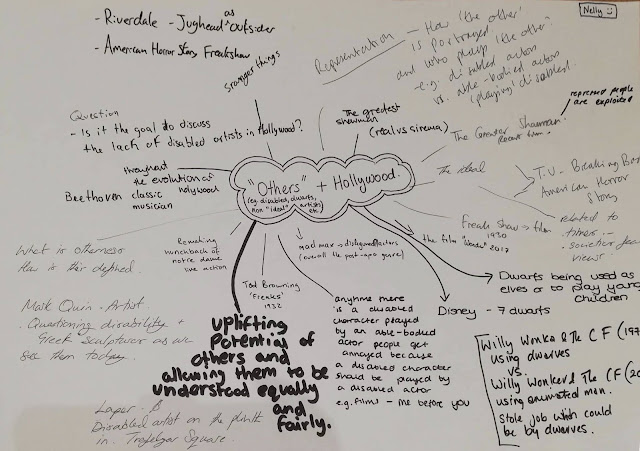 Nelly
- Riverdale - Jughead as outsider
- American Horror Story Freakshow
sranger things
Representation - How 'the other'
is portrayed
and who plays 'the other'?
- e.g. disabled actors
vs. able-bodied actors
(playing) disabled.
Question
- Is it the goal to discuss
the lack of disabled artists in Hollywood?
The greatest
showman
(real vs cinema)
The Greater Showman
Recent film
represed people
are exploited
throughout
the evolution of
hollywood
Beethoven classic
musician
"Others" + Hollywood.
(eg. disabled, dwarts,
non "ideal" artists)
etc
The ideal
T.V - Breaking Bad
American Horror
Story
related to
times -
societies
views.
Freak Show - film
1930
the film "Wonder" 2017
What is otherness
How is this defined.
Remaking
hunchback of
notre dame
live action
Tod Browning
'Freaks'
1932
mad max -> disfigured actors
(overall the post-apo genre)
Dwarfs being used as
elves or to play young
children
Disney - 7 dwarfs
Mark Quin - Artist.
Questioning disability +
Greek Sculpture as we
see them today.
uplifting
potential of
others and
allowing them to be
understood equally
and
fairly.
anytime there
is a disabled
character played
by an able-bodied
actor people get
annoyed because
a disabled character
should be played by
a disabled actor
e.g. films - me before you
Willy Wonka & The C F (197
using dwarves
vs.
Willy Wonker & The CF (20
using animated men.
Stole job which could
be by dwarves.
Laper - B
Disabled artist on the plinth
in Trafelgar Square.